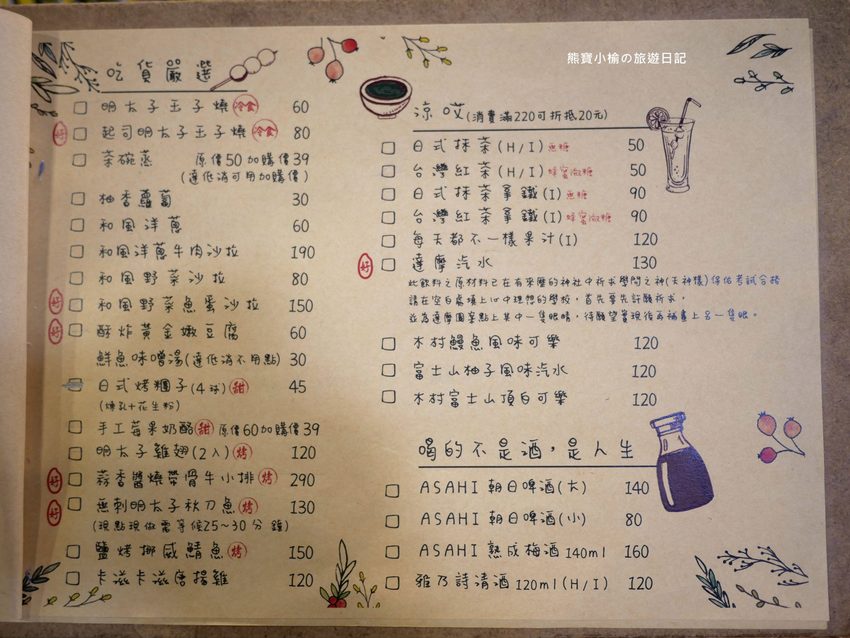 熊寶小榆の旅遊日記
吃貨嚴選
明太子玉子燒 冷食 60
好 起司明太子玉子燒 冷食 80
茶碗蒸 原價50加購價39
(達低消可用加購價)
柚香蘿蔔 30
和風洋蔥 60
和風洋蔥牛肉沙拉 190
和風野菜沙拉 80
好 和風野菜魚蛋沙拉 150
好 酥炸黃金嫩豆腐 60
鮮魚味噌湯(達低消不用點) 30
日式烤糰子(4球) 甜 45
(煉乳+花生粉)
手工莓果奶酪 甜 原價60加購價39
明太子雞翅(2入) 烤 120
好 蒜香醬燒帶骨牛小排 烤 290
好 無刺明太子秋刀魚 烤 130
(現點現做需等候25~30分鐘)
鹽烤挪威鯖魚 烤 150
卡滋卡滋唐揚雞 120
涼哎(消費滿220可折抵20元)
日式抹茶(H/I) 無糖 50
台灣紅茶(H/I) 蜂蜜微糖 50
日式抹茶拿鐵(I) 無糖 90
台灣紅茶拿鐵(I) 蜂蜜微糖 90
每天都不一樣果汁(I) 120
好 達摩汽水 130
此飲料之原材料已在有來歷的神社中祈求學問之神(天神樣)保佑考試合格
請在空白處填上心中理想的學校,首先要先許願祈求,
並為達摩圖案點上其中一隻眼睛,待願望實現後再補畫上另一隻眼。
木村鰻魚風味可樂 120
富士山柚子風味汽水 120
木村富士山頂白可樂 120
喝的不是酒,是人生
ASAHI 朝日啤酒(大) 140
ASAHI 朝日啤酒(小) 80
ASAHI 熟成梅酒 140ml 160
雅乃詩清酒 120ml(H/I) 120